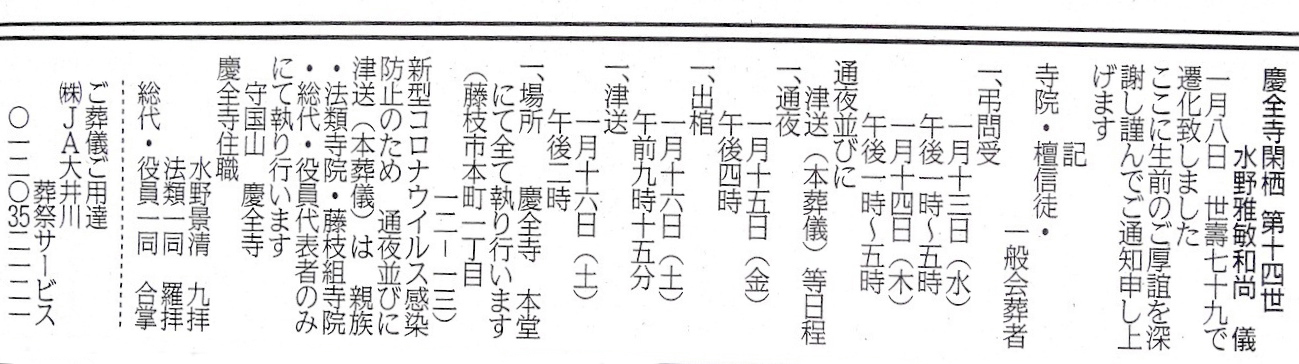 慶全寺閑栖 第十四世
水野雅敏和尚 儀
一月八日 世壽七十九で
遷化致しました
ここに生前のご厚誼を深
謝し謹んでご通知申し上
げます
記
寺院・檀信徒・
一般会葬者
一、弔問受
一月十三日（水）
午後一時～五時
一月十四日（木）
午後一時～五時
通夜並びに
津送（本葬儀）等日程
一、通夜
一月十五日（金）
午後四時
一、出棺
一月十六日（土）
午前九時十五分
一、津送
一月十六日（土）
午後二時
一、場所 慶全寺 本堂
にて全て執り行います
（藤枝市本町一丁目
一二－一三）
新型コロナウイルス感染
防止のため 通夜並びに
津送（本葬儀）は 親族
・法類寺院・藤枝組寺院
・総代・役員代表者のみ
にて執り行います
守国山 慶全寺
慶全寺住職
水野景清 九拝
法類一同 羅拝
総代・役員一同 合掌
ご葬儀ご用達
㈱ＪＡ大井川
葬祭サービス
〇一二〇35二一二一